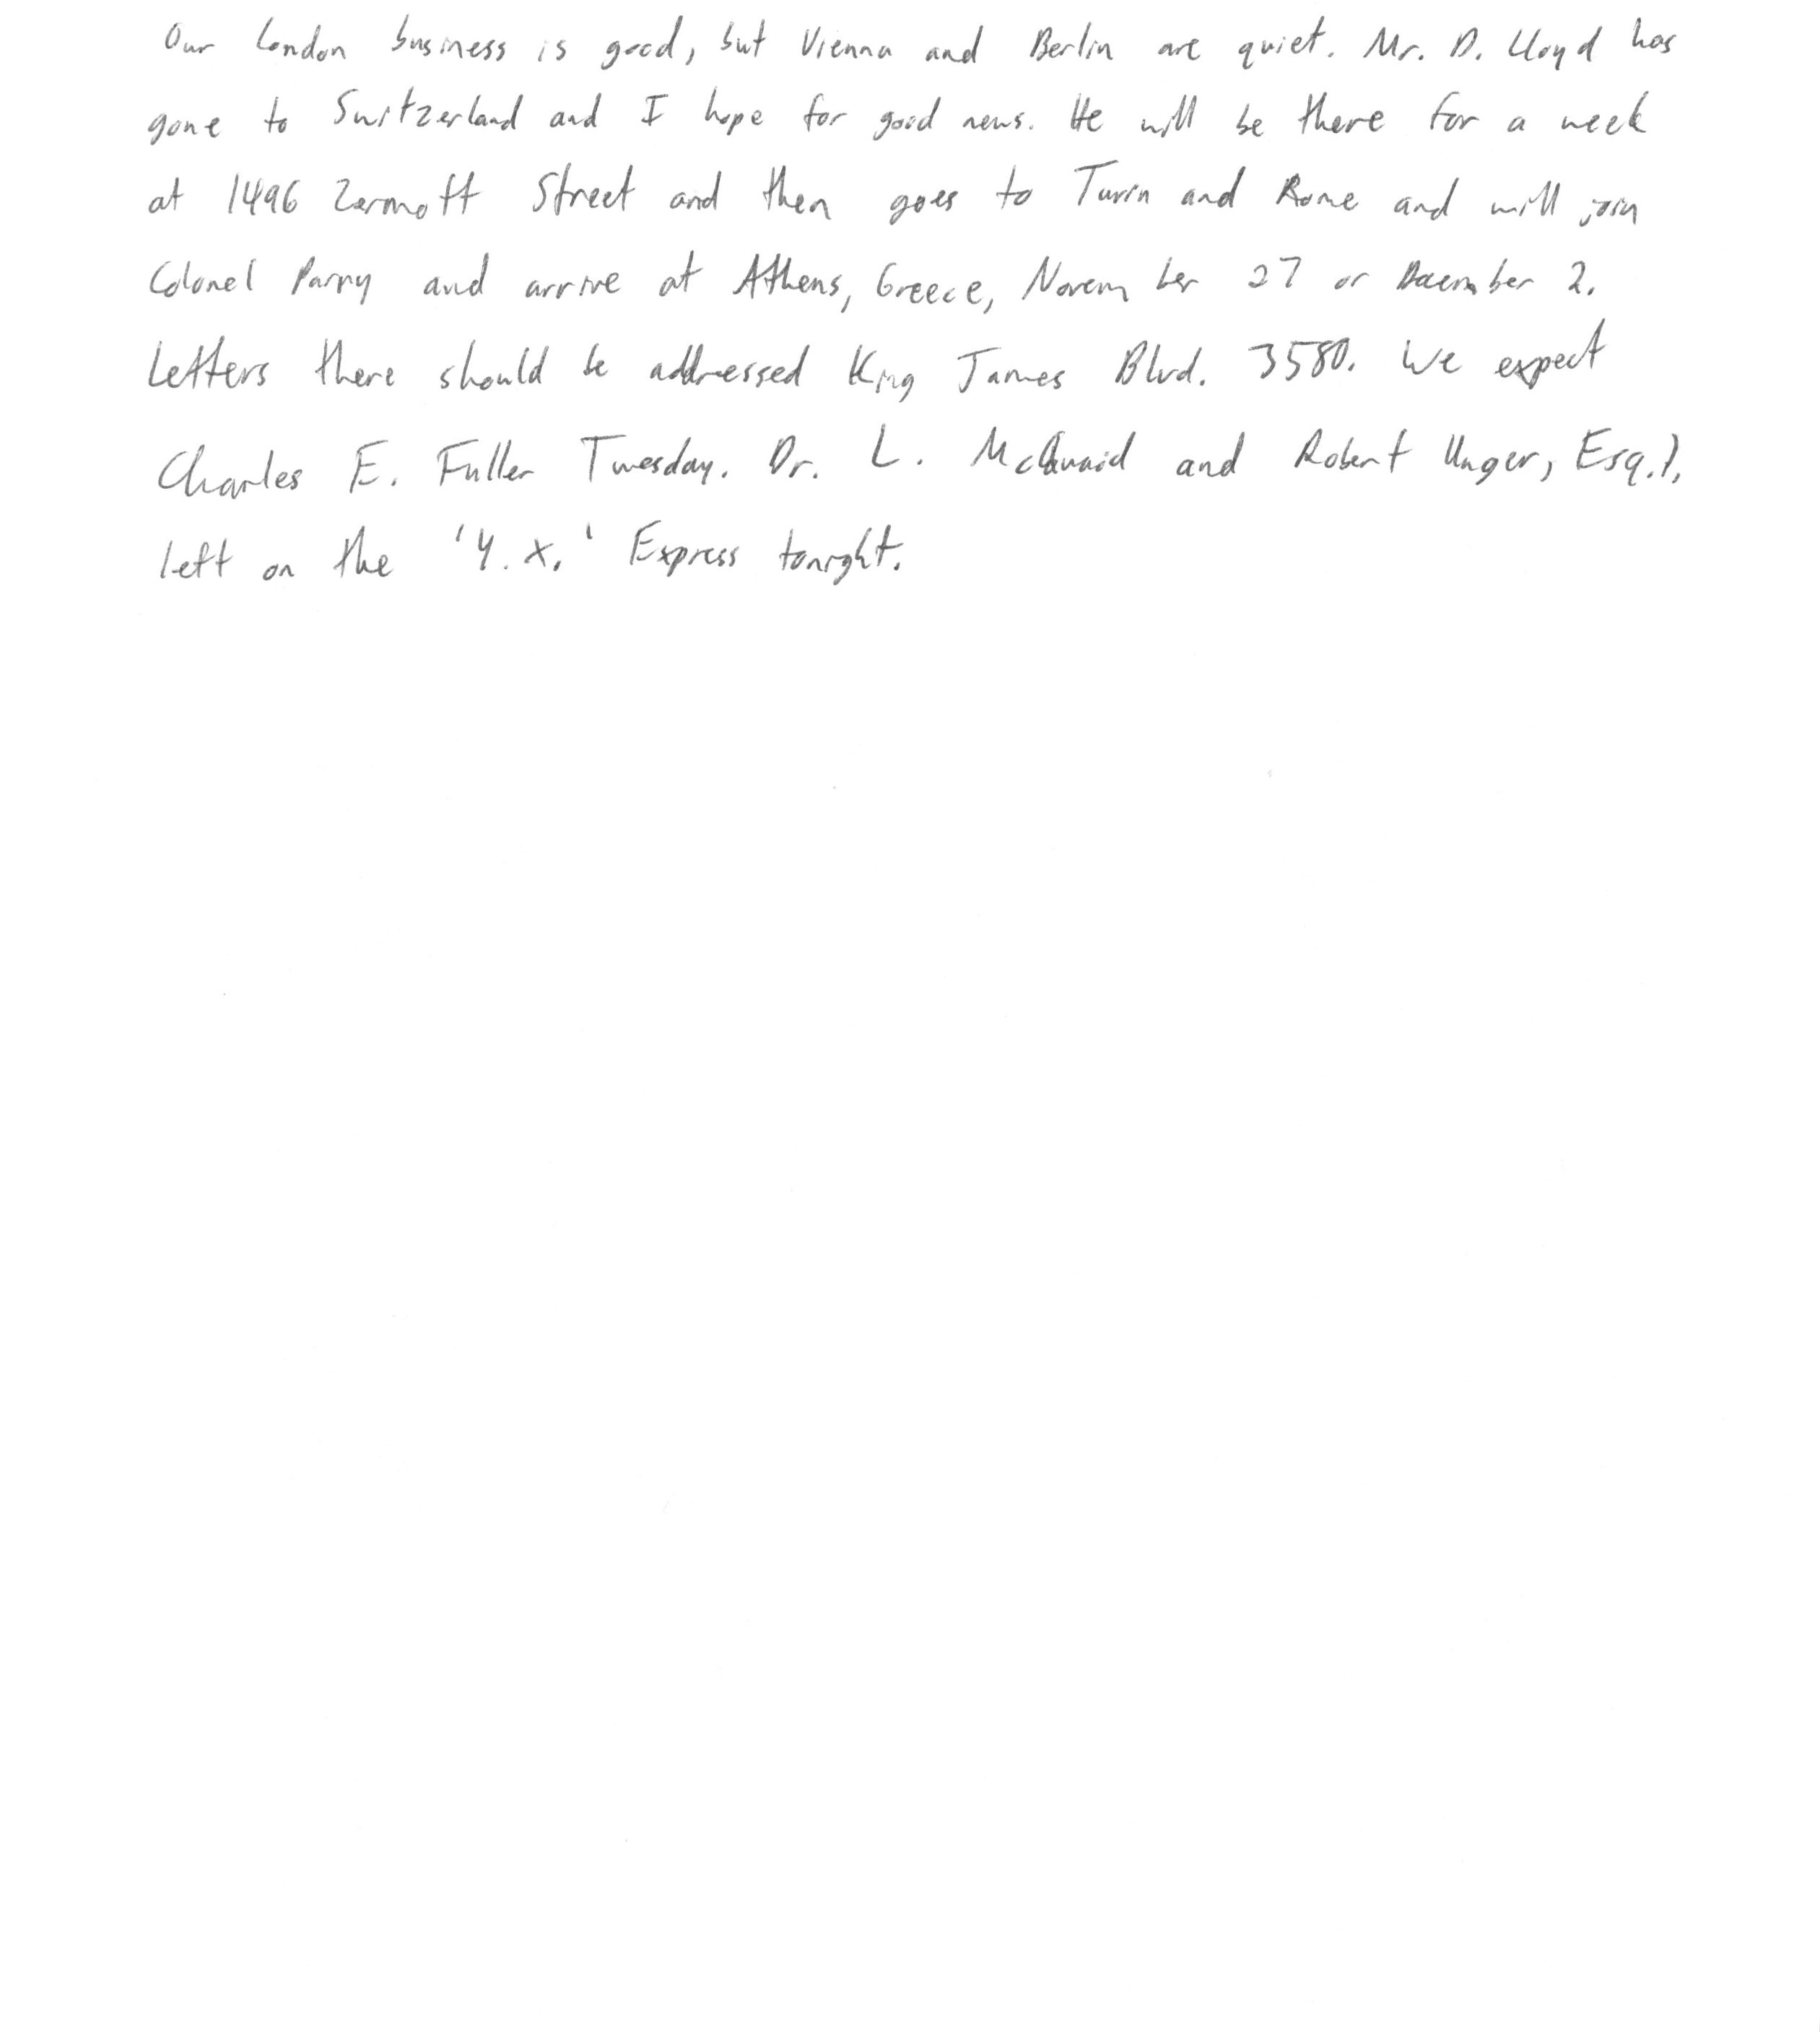 Our London business is good, but Vienna and Berlin are quiet. Mr. D. Lloyd has
gone to Switzerland and I hope for good news. He will be there for a week
at 1496 Zermott Street and then goes to Turin and Rome and will join
Colonel Parry and arrive at Athens, Greece, November 27 or December 2.
Letters there should be addressed King James Blvd. 3580. We expect
Charles E. Fuller Tuesday. Dr. L. McQuaid and Robert Unger, Esq.),
left on the 'Y.X.' Express tonight.